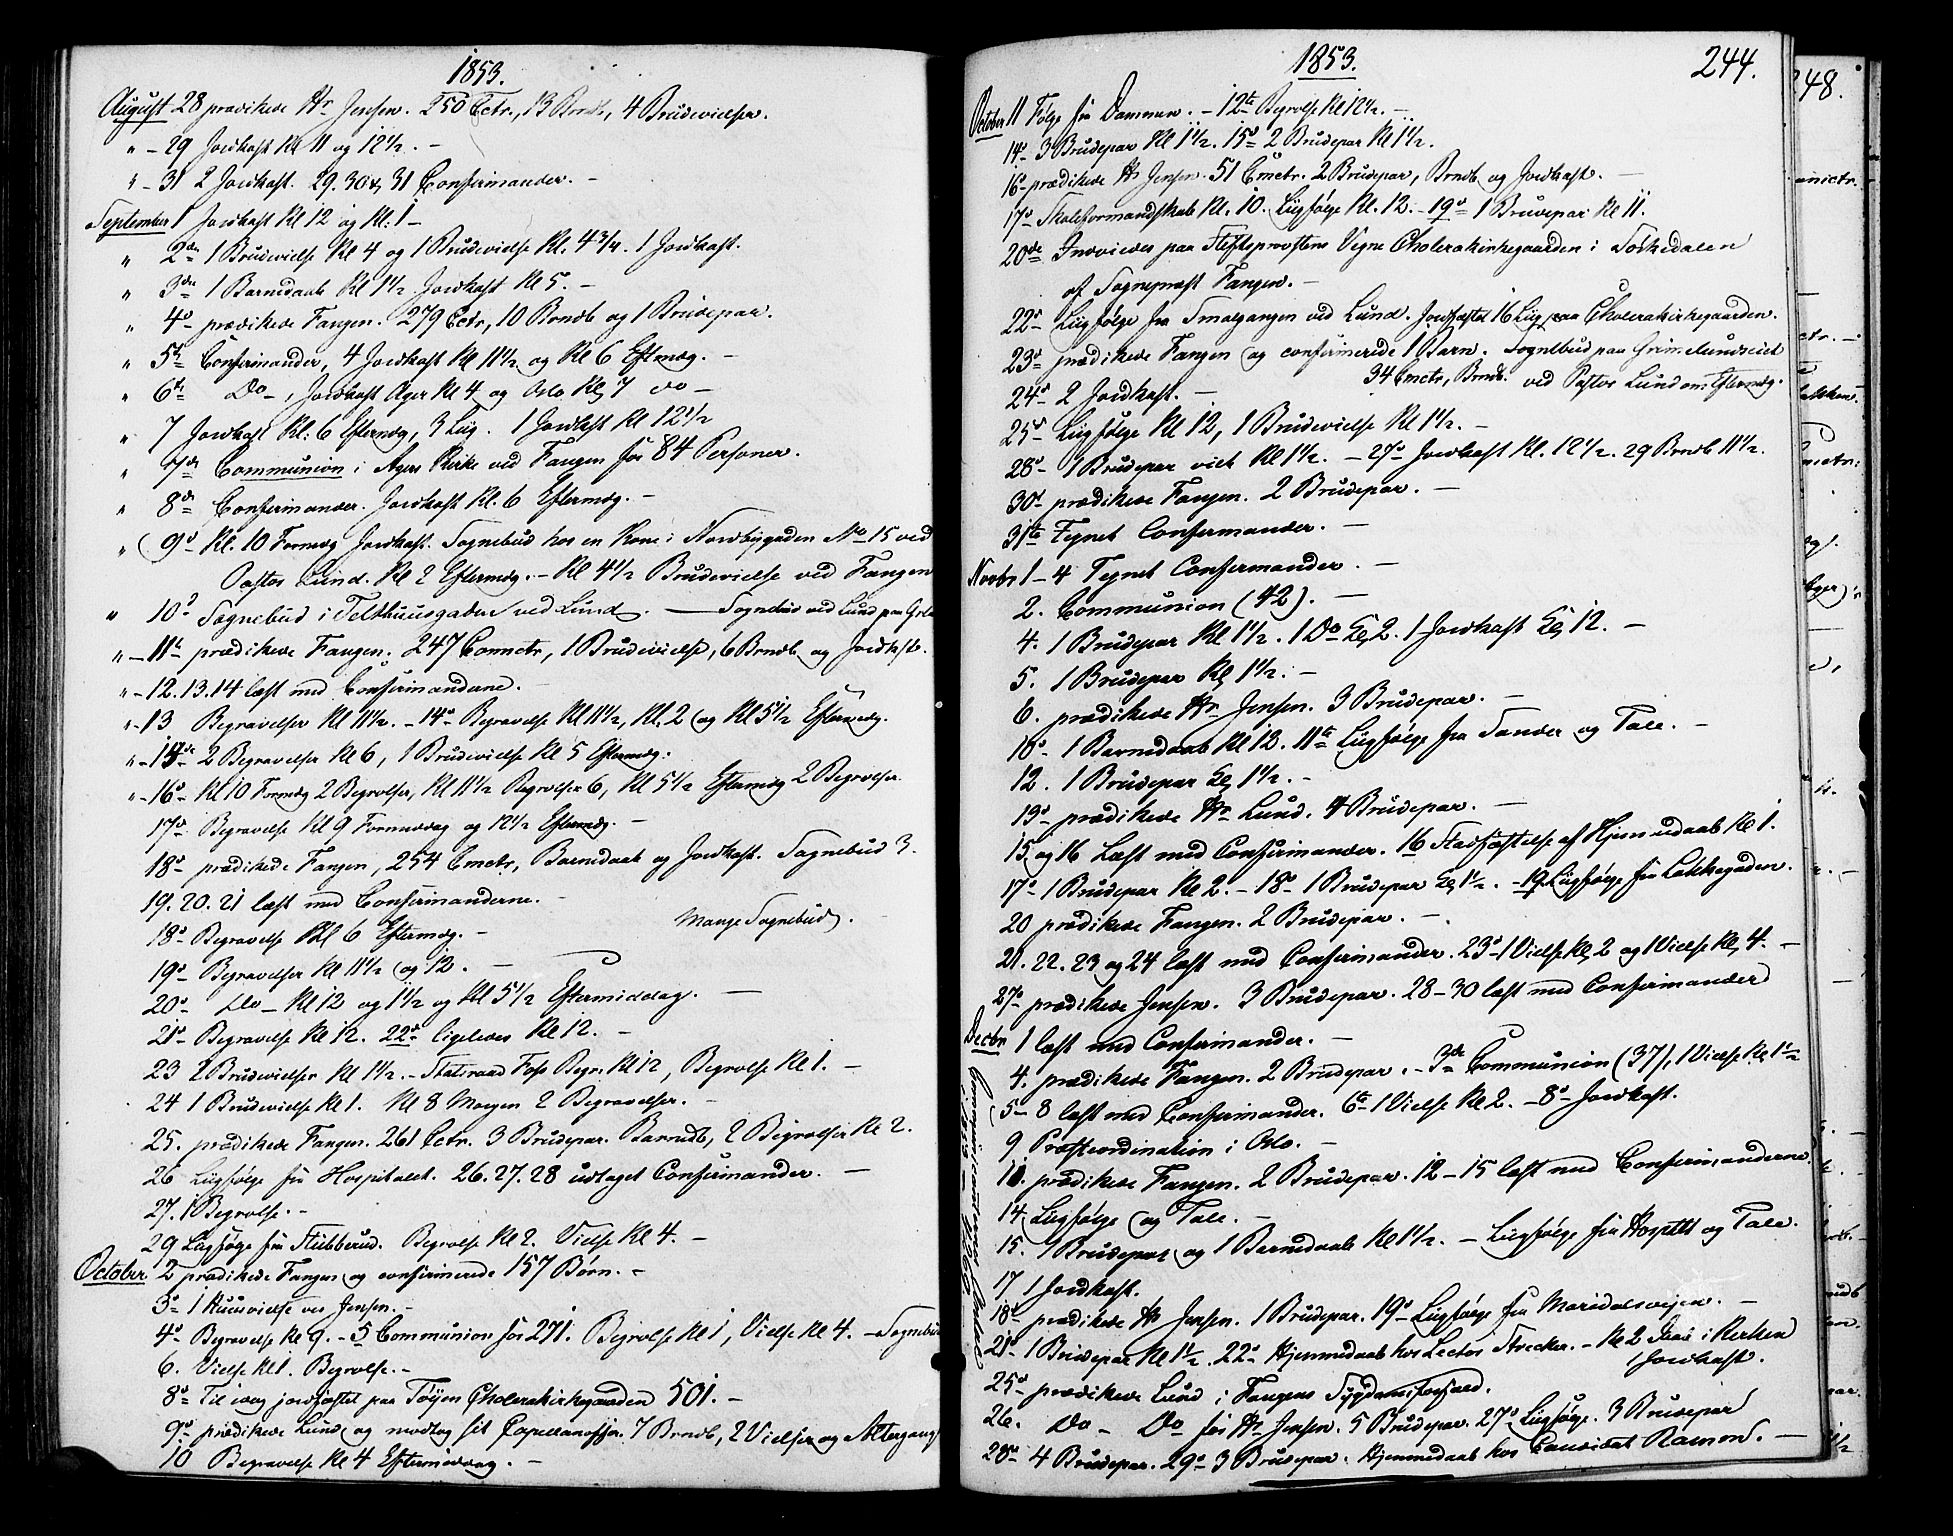 1853.
August 28 prædikede Hr Jensen. 250 Cctr., 13 Brndb, 4 Brudevielser.
" - 29 Jordkast Kl 11 og 12 1/2. -
" - 31 2 Jordkast. 29. 30 & 31 Confirmander. -
September 1 Jordkast Kl 12 og Kl: 1 -
" 2den 1 Brudevielse Kl 4 og 1 Brudevielse Kl. 4 3/4. 1 Jordkast.
" 3die 1 Barnedaab Kl 1 1/2 Jordkast Kl 5. -
" 4d prædikede Fangen. 279 Cctr, 10 Brndb og 1 Brudepar.
" 5te Confirmander, 4 Jordkast Kl 11 1/2 og Kl 6 Eftmdg. -
" 6te Do -, Jordkast Ager Kl 4 og Oslo Kl 7 do -
" 7 Jordkast Kl: 6 Eftermdg, 3 Liig. 1 Jordkast Kl 12 1/2
" 7de Communion i Agers Kirke ved Fangen for 84 Personer.
" 8de Confirmander. Jordkast Kl. 6 Eftermdg. -
" 9d Kl. 10 Formdg Jordkast. Sognebud hos en Kone i Nordbygaden No 15 ved
Pastor Lund. Kl 2 Eftermdg. - Kl 4 1/2 Brudevielse ved Fangen
" 10d Sognebud i Telthuusgaden ved Lund. - Sognebud ved Lund paa
" - 11te prædikede Fangen. 247 Comnctr, 1 Brudevielse, 6 Brndb og Jordkast.
" - 12. 13. 14 læst med Confirmanderne. -
" - 13 Begravelser Kl 11 1/2. - 14d Begravelse Kl 11 1/2, Kl. 2 og Kl 5 1/2 Eftermdg.
" - 15de 2 Begravelser Kl 6, 1 Brudevielse Kl 5 Eftermdg.
" - 16d Kl 10 Formdg 2 Begrvlser, Kl 11 1/2 Begrvlser 6, Kl 5 1/2 Eftermdg 2 Begrvlser
17d Begravelse Kl 9 Formiddag og 12 1/2 Eftermdg. -
18d prædikede Fangen, 254 Cmctr, Barnedaab og Jordkast. Sognebud 3.
19. 20. 21 læst med Confirmanderne. -
18d Begravelse Kl 6 Eftermdg. - Mange Sognebud.
19d Begravelser Kl 11 1/2 og 12. -
20d Do - Kl 12 og 1 1/2 og Kl 5 1/2 Eftermiddag. -
21d Begravelse Kl 12. 22d ligeledes Kl 12. -
23 2 Brudevielser Kl 1 1/2. - Statsraad Foss Begr. Kl 12, Begrvlse Kl 1. -
24 1 Brudevielse Kl 1. Kl 8 Morgen 2 Begravelser. -
25. prædikede Fangen. 261 Cctr. 3 Brudepar. Barndb, 2 Begrvlser Kl 2.
26 Liigfølge fra Hospitalet. 26. 27. 28 udtaget Confirmander. -
27. 1 Begrvlse. -
29 Liigfølge fra Stubberud. Begrvlse Kl 2. Vielse Kl 4. -
October 2 prædikede Fangen og confirmerede 157 Børn. -
3d 1 Huusvielse ved Jensen. -
4d Begravelse Kl 9. - 5 Communion for 271. Begrvlse Kl 1, Vielse Kl 4. - Sognebud
6. Vielse Kl 1. Begrvlse. -
8d Til idag jordfæstet paa Tøyen Cholerakirkegaarden 501. -
9d prædikede Lund og modtog sit Capellani. 7 Brndb, 2 Vielser og Altergang
10 Begravelse Kl 4 Eftermiddag. -
1853.
244.
October 11 Følge fra Dammen. - 12te Begrvlse Kl 12 1/2. -
14d 3 Brudepar Kl 1 1/2. 15d 2 Brudepar Kl 1 1/2.
16d prædikede Hr Jensen. 51 Cmctr. 2 Brudepar, Brndb og Jordkast. -
17d Skoleformandskab Kl. 10. Liigfølge Kl. 12. - 19d 1 Brudepar Kl 11.
20de Indviedes paa Stiftsprovstens Vegne Cholerakirkegaarden i Sørkedalen
af Sognepræst Fangen. -
22d Liigfølge fra Smalgangen ved Lund. Jordfæstet 16 Liig paa Cholerakirkegaarden.
23d prædikede Fangen og confirmerede 1 Barn. Sognebud paa Grimelundseiet
34 Cmctr, Brndb. ved Pastor Lund om Eftermdg.
24d 2 Jordkast. -
25d Liigfølge Kl 12, 1 Brudevielse Kl 1 1/2. -
28d 1 Brudepar viet Kl 1 1/2. - 27d Jordkast Kl. 12 1/2. 29 Brndb 11 1/2.
30d prædikede Fangen. 2 Brudepar. -
31te Tegnet Confirmander. -
Novbr 1 - 4 Tegnet Confirmander. -
2. Communion (42). -
4. 1 Brudepar Kl 1 1/2. 1 Do Kl 2. 1 Jordkast Kl 12. -
5. 1 Brudepar Kl 1 1/2. -
6. prædikede Hr Jensen. 3 Brudepar. -
10d 1 Barnedaab Kl 12. 11te Liigfølge fra Sander og Tale. -
12. 1 Brudepar Kl 1 1/2. -
13d prædikede Hr Lund. 4 Brudepar. -
15 og 16 Læst med Confirmander. 16 Stadfæstelse af Hjemmedaab Kl 1.
17d 1 Brudepar Kl 2. - 18d 1 Brudepar Kl 1 1/2. - 19 Liigfølge fra Løkkegaden.
20 prædikede Fangen. 2 Brudepar. -
21. 22. 23 og 24 læst med Confirmander. 23d 1 Vielse Kl 2 og 1 Vielse Kl 4. -
27d prædikede Jensen. 3 Brudepar. 28 - 30 læst med Confirmander
Decbr 1 læst med Confirmander. -
4. prædikede Fangen. 2 Brudepar. - 3de Communion (37), 1 Vielse Kl 1 1/2
5 - 8 læst med Confirmander. 6te 1 Vielse Kl 2. - 8d Jordkast.
9 Præsteordination i Oslo. -
11. prædikede Fangen. 2 Brudepar. 12 - 15 læst med Confirmanderne
14 Liigfølge og Tale. -
15. 1 Brudepar og 1 Barnedaab Kl 1 1/2. - Liigfølge fra Hosptlt og Tale.
17 1 Jordkast.
18d prædikede Hr Jensen. 1 Brudepar. 19d Liigfølge fra Maridalsveien. -
21d 1 Brudepar Kl 1 1/2. 22d Hjemmedaab hos Lector Strecker. - Kl 2 Daab i Kirken
1 Jordkast.
25d prædikede Lund i Fangens Sygdomsforfald.
26. Do - Do for Hr Jensen. 5 Brudepar. 27d Liigfølge. 3 Brudepar
28d 4 Brudepar. 29d 3 Brudepar. Hjemmedaab hos Candidat Ramm. -
248.